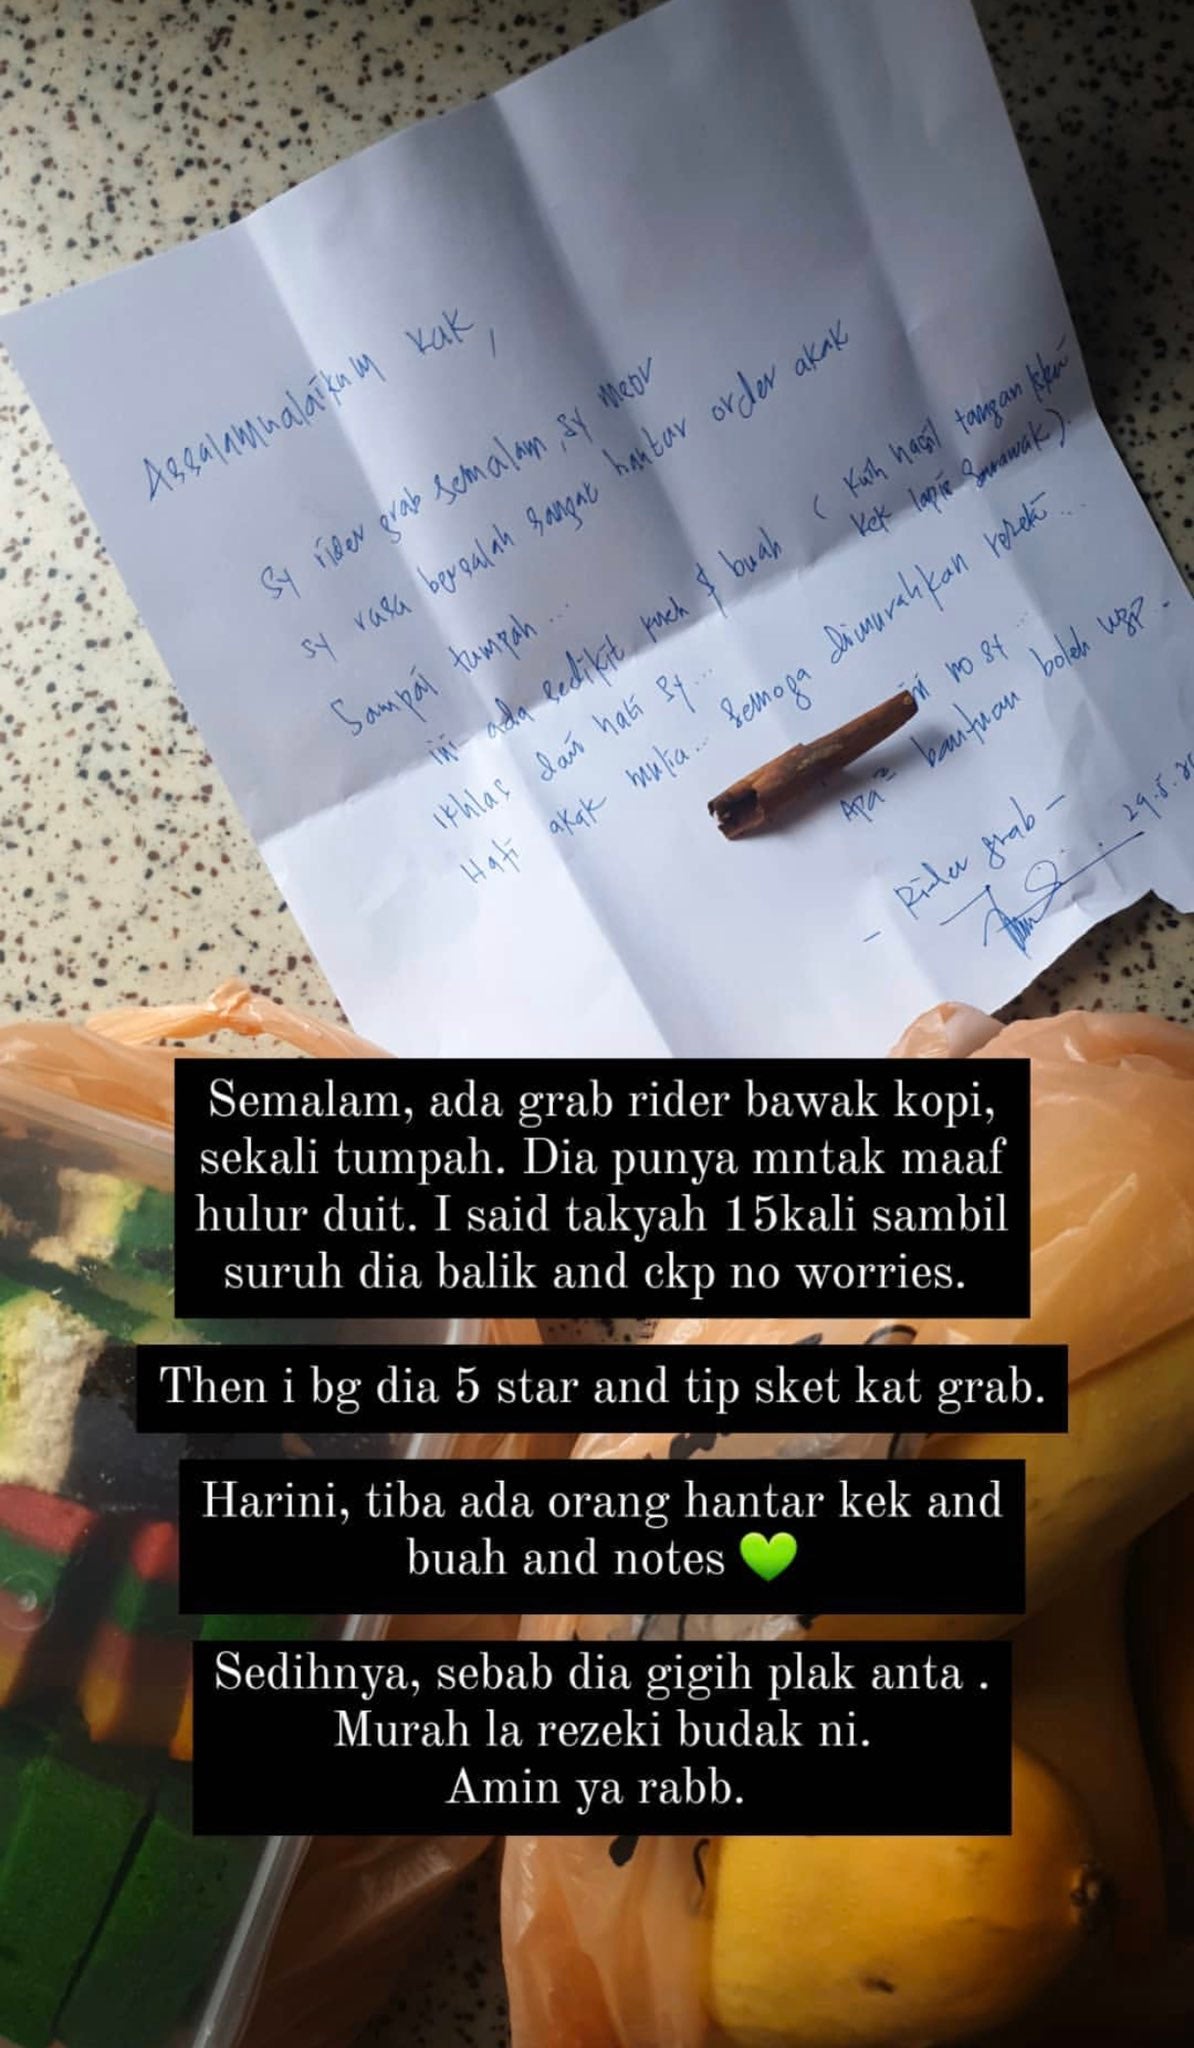 Assalamualaikum kak,
Sy rider grab semalam, sy meor
sy rasa bersalah sangat hantar order akak
Sampai tumpah...
ini ada sedikit kueh & buah ( Kuih hasil tangan
kek lapis Sarawak).
ikhlas dari hati sy...
Hati akak mulia... semoga dimurahkan rezeki...
ini no sy...
Apa2 bantuan boleh wsp.
- Rider grab -
29.5.
Semalam, ada grab rider bawak kopi,
sekali tumpah. Dia punya mntak maaf
hulur duit. I said takyah 15kali sambil
suruh dia balik and ckp no worries.
Then i bg dia 5 star and tip sket kat grab.
Harini, tiba ada orang hantar kek and
buah and notes 💚
Sedihnya, sebab dia gigih plak anta .
Murah la rezeki budak ni.
Amin ya rabb.